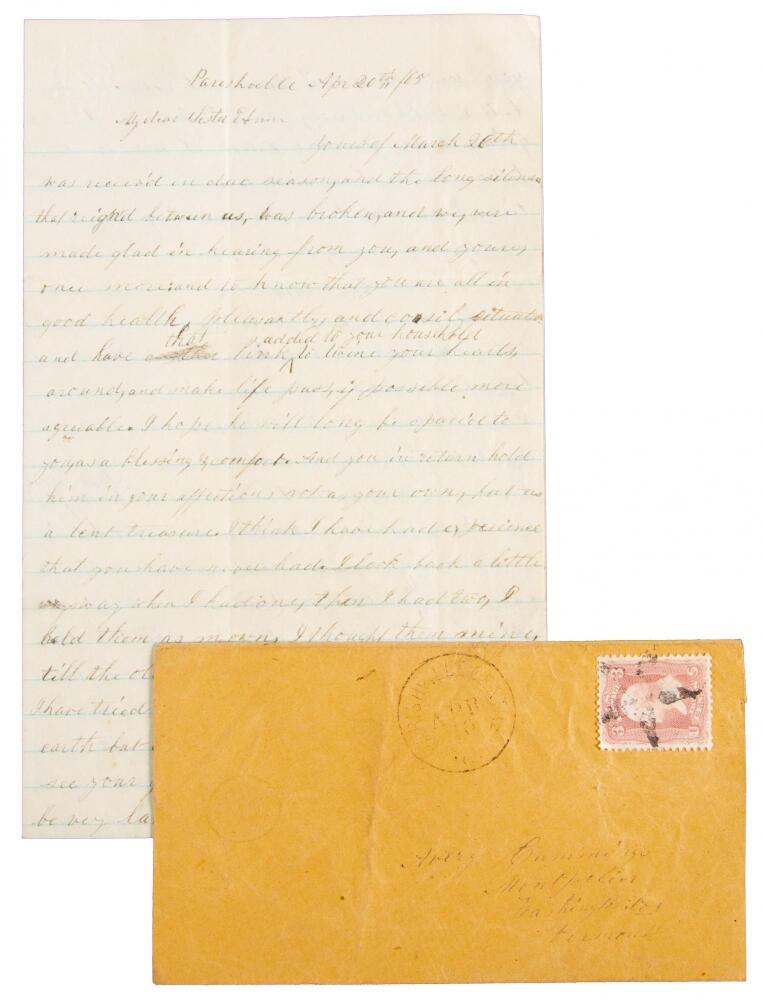 Parishville Apr 20th /65
My dear Sister
Yours of March 20th
was receiv'd in due season, and the long silence
that reign'd between us, was broken, and we, were
made glad in hearing from you, and yours,
once more; and to know that you are all in
good health, pleasantly, and situated
that added to your household
and have link to twine your hearts,
around, and make life pass, if possible more
agreeable. I hope he will long be spared to
you, as a blessing & comfort. And you in return hold
him in your affections not as your own, but as
a lent treasure. I think I have had experience
that you have never had. I look back a little
way when I had one, then I had two, I
held them as my own, I thought them mine,
till the
I have tried
earth but
see your
be very
APR
3 3
U
Avery Cummings
Montpelier
Washington Co
Vermont